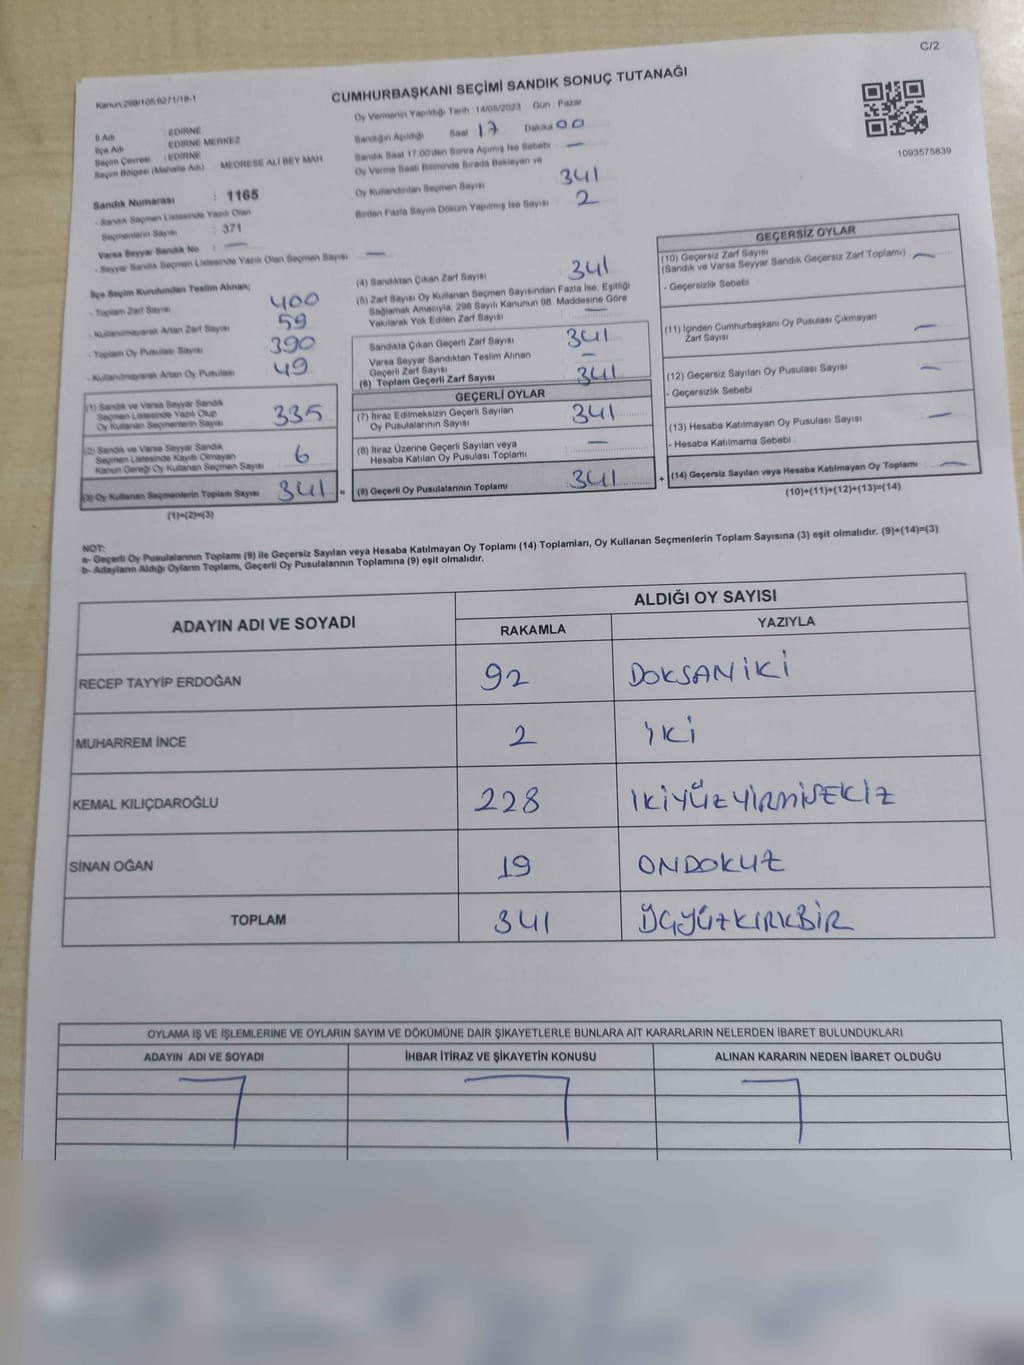 C/2
Kanun:298/105;6271/18-1
CUMHURBAŞKANI SEÇİMİ SANDIK SONUÇ TUTANAĞI
1093575839
İl Adı : EDİRNE
İlçe Adı : EDİRNE MERKEZ
Seçim Çevresi : EDİRNE
Seçim Bölgesi (Mahalle Adı) : MEDRESE ALİ BEY MAH
Sandık Numarası : 1165
- Sandık Seçmen Listesinde Yazılı Olan
Seçmenlerin Sayısı : 371
Varsa Seyyar Sandık No : —
- Seyyar Sandık Seçmen Listesinde Yazılı Olan Seçmen Sayısı —
Oy Vermenin Yapıldığı Tarih :14/05/2023 Gün : Pazar
Sandığın Açıldığı Saat : 17 Dakika 00
Sandık Saat 17:00'den Sonra Açılmış İse Sebebi : —
Oy Verme Saati Bitiminde Sırada Bekleyen ve
Oy Kullandırılan Seçmen Sayısı 341
Birden Fazla Sayım Döküm Yapılmış İse Sayısı : 2
İlçe Seçim Kurulundan Teslim Alınan;
- Toplam Zarf Sayısı : 400
- Kullanılmayarak Artan Zarf Sayısı : 59
- Toplam Oy Pusulası Sayısı : 390
- Kullanılmayarak Artan Oy Pusulası : 49
(1) Sandık ve Varsa Seyyar Sandık
Seçmen Listesinde Yazılı Olup
Oy Kullanan Seçmenlerin Sayısı : 335
(2) Sandık ve Varsa Seyyar Sandık
Seçmen Listesinde Kayıtlı Olmayan
Kanun Gereği Oy Kullanan Seçmen Sayısı : 6
(3) Oy Kullanan Seçmenlerin Toplam Sayısı : 341 =
(1)+(2)=(3)
(4) Sandıktan Çıkan Zarf Sayısı : 341
(5) Zarf Sayısı Oy Kullanan Seçmen Sayısından Fazla İse, Eşitliği
Sağlamak Amacıyla, 298 Sayılı Kanunun 98. Maddesine Göre
Yakılarak Yok Edilen Zarf Sayısı : —
Sandıkta Çıkan Geçerli Zarf Sayısı : 341
Varsa Seyyar Sandıktan Teslim Alınan
Geçerli Zarf Sayısı : —
(6) Toplam Geçerli Zarf Sayısı : 341
GEÇERLİ OYLAR
(7) İtiraz Edilmeksizin Geçerli Sayılan
Oy Pusulalarının Sayısı : 341
(8) İtiraz Üzerine Geçerli Sayılan veya
Hesaba Katılan Oy Pusulası Toplamı : —
(9) Geçerli Oy Pusulalarının Toplamı : 341 +
GEÇERSİZ OYLAR
(10) Geçersiz Zarf Sayısı
(Sandık ve Varsa Seyyar Sandık Geçersiz Zarf Toplamı) : —
- Geçersizlik Sebebi :
(11) İçinden Cumhurbaşkanı Oy Pusulası Çıkmayan
Zarf Sayısı : —
(12) Geçersiz Sayılan Oy Pusulası Sayısı : —
- Geçersizlik Sebebi :
(13) Hesaba Katılmayan Oy Pusulası Sayısı : —
- Hesaba Katılmama Sebebi :
(14) Geçersiz Sayılan veya Hesaba Katılmayan Oy Toplamı : —
(10)+(11)+(12)+(13)=(14)
NOT:
a- Geçerli Oy Pusulalarının Toplamı (9) ile Geçersiz Sayılan veya Hesaba Katılmayan Oy Toplamı (14) Toplamları, Oy Kullanan Seçmenlerin Toplam Sayısına (3) eşit olmalıdır. (9)+(14)=(3)
b- Adayların Aldığı Oyların Toplamı, Geçerli Oy Pusulalarının Toplamına (9) eşit olmalıdır.
ADAYIN ADI VE SOYADI
ALDIĞI OY SAYISI
RAKAMLA YAZIYLA
RECEP TAYYİP ERDOĞAN 92 DOKSANİKİ
MUHARREM İNCE 2 İKİ
KEMAL KILIÇDAROĞLU 228 İKİYÜZYİRMİSEKİZ
SİNAN OĞAN 19 ONDOKUZ
TOPLAM 341 ÜÇYÜZKIRKBİR
OYLAMA İŞ VE İŞLEMLERİNE VE OYLARIN SAYIM VE DÖKÜMÜNE DAİR ŞİKAYETLERLE BUNLARA AİT KARARLARIN NELERDEN İBARET BULUNDUKLARI
ADAYIN ADI VE SOYADI İHBAR İTİRAZ VE ŞİKAYETİN KONUSU ALINAN KARARIN NEDEN İBARET OLDUĞU